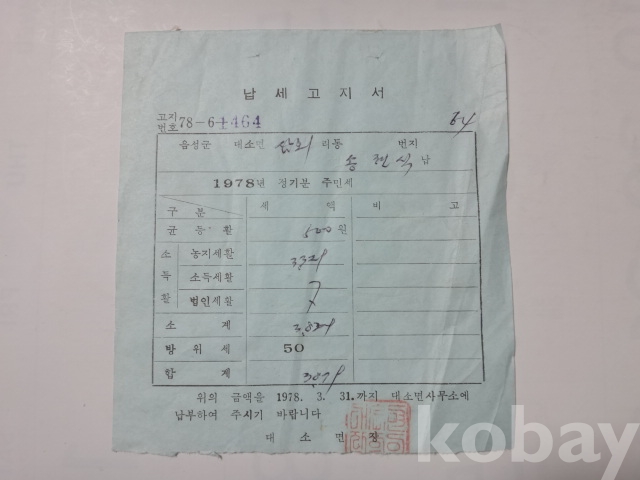 납세고지서
고지
번호 78-6-1464
64
음성군 대소면 삼호 리동 번지
송 식 납
1978년 정기분 주민세
구분 세액 비고
균등할 500 원
소득할 농지세할 3,329
소득세할
법인세할
소계 3,829
방위세 50
합계 3,879
위의 금액을 1978. 3. 31.까지 대소면사무소에
납부하여 주시기 바랍니다
대소면장
kobay